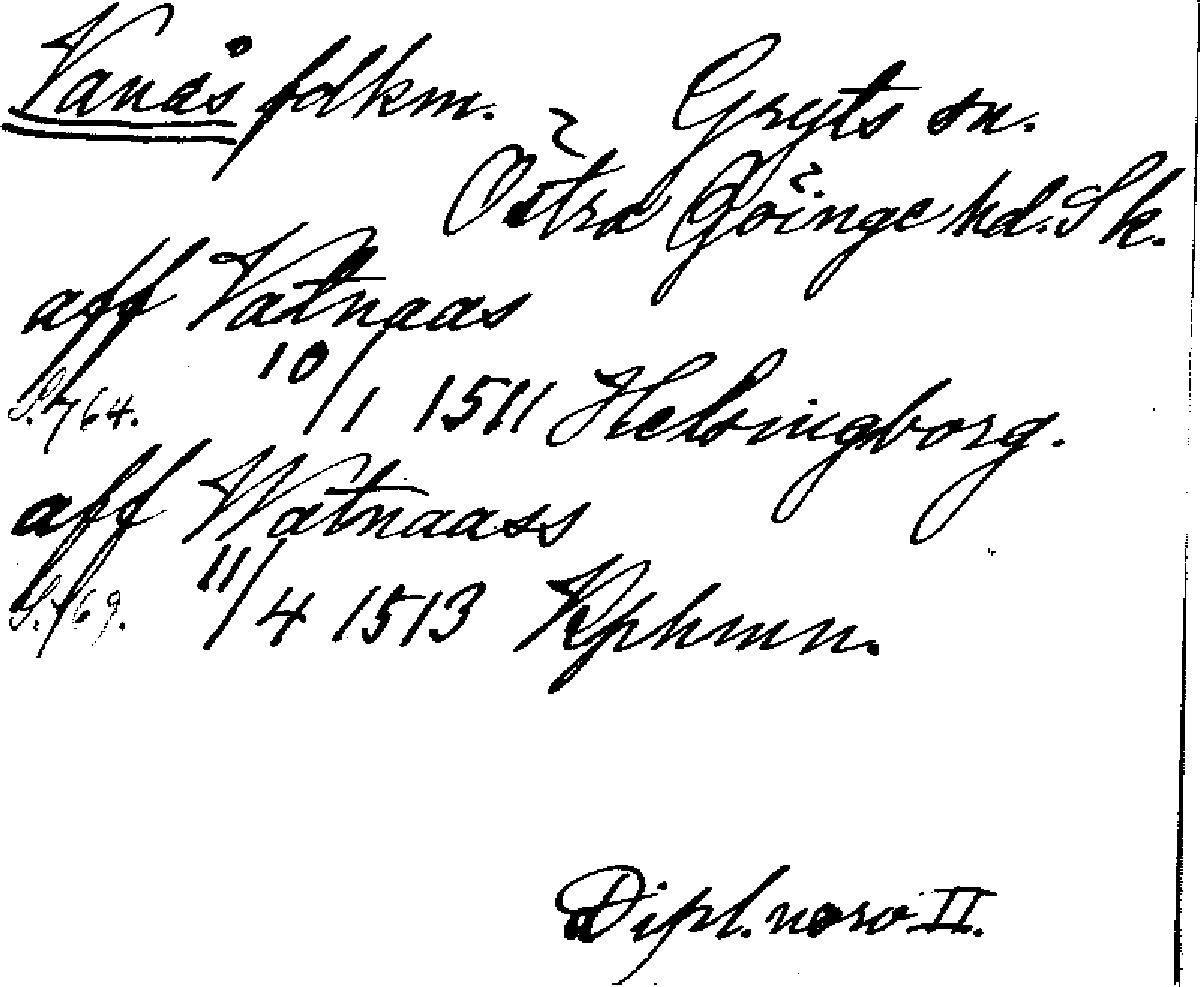 Vanås fdkm. Gryts sn.
Östra Göinge hd. Sk.
aff Vatnaas
S. 764. 10/1 1511 Helsingborg.
aff Watnaass
S. 769. 11/4 1513 Kphmn.
Dipl. norv II.